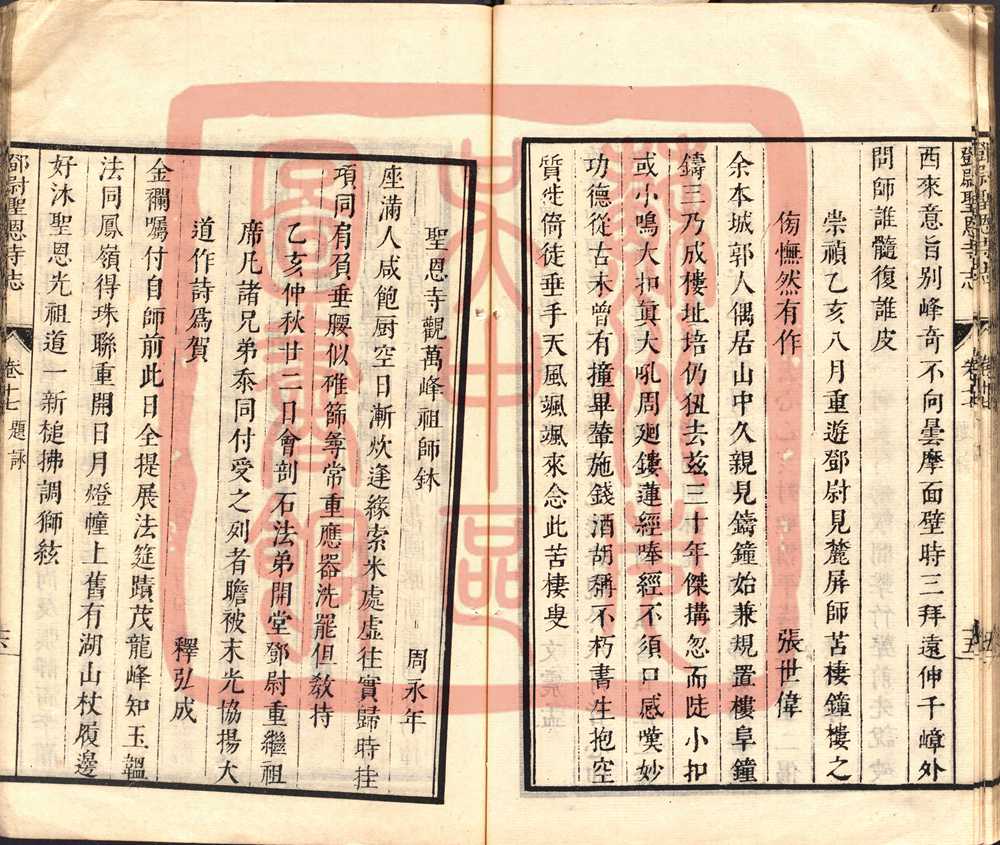 鄧尉聖恩寺志
卷十七
西來意旨別峰奇不向曇摩面壁時三拜遠伸千嶂外
問師誰髓復誰皮
崇禎乙亥八月重遊鄧尉見麓屏師苦棲鐘樓之
傍憮然有作 張世偉
余本城郭人偶居山中久親見鑄鐘始兼規置樓阜鐘
鑄三乃成樓址培仍狃去茲三十年傑搆忽而陡小扣
或小鳴大扣眞大吼周廻鏤蓮經唪經不須口感嘆妙
功德從古未曾有撞畢輦施錢酒胡稱不朽書生抱空
質徙倚徒垂手天風颯颯來念此苦棲叟
聖恩寺觀萬峰祖師鉢 周永年
座滿人咸飽厨空日漸炊逢緣索米處虛往實歸時挂
項同肩負垂腰似碓篩尋常重應器洗罷但敎持
乙亥仲秋廿二日會剖石法弟開堂鄧尉重繼祖
席凡諸兄弟忝同付受之列者瞻被末光協揚大
道作詩爲賀 釋弘成
金襴囑付自師前此日全提展法筵蹟茂龍峰知玉韞
法同鳳嶺得珠聯重開日月燈幢上舊有湖山杖履邊
好沐聖恩光祖道一新槌拂調獅絃
鄧尉聖恩寺志
卷十七 題詠
十六
蘇州市
文中區
圖書館